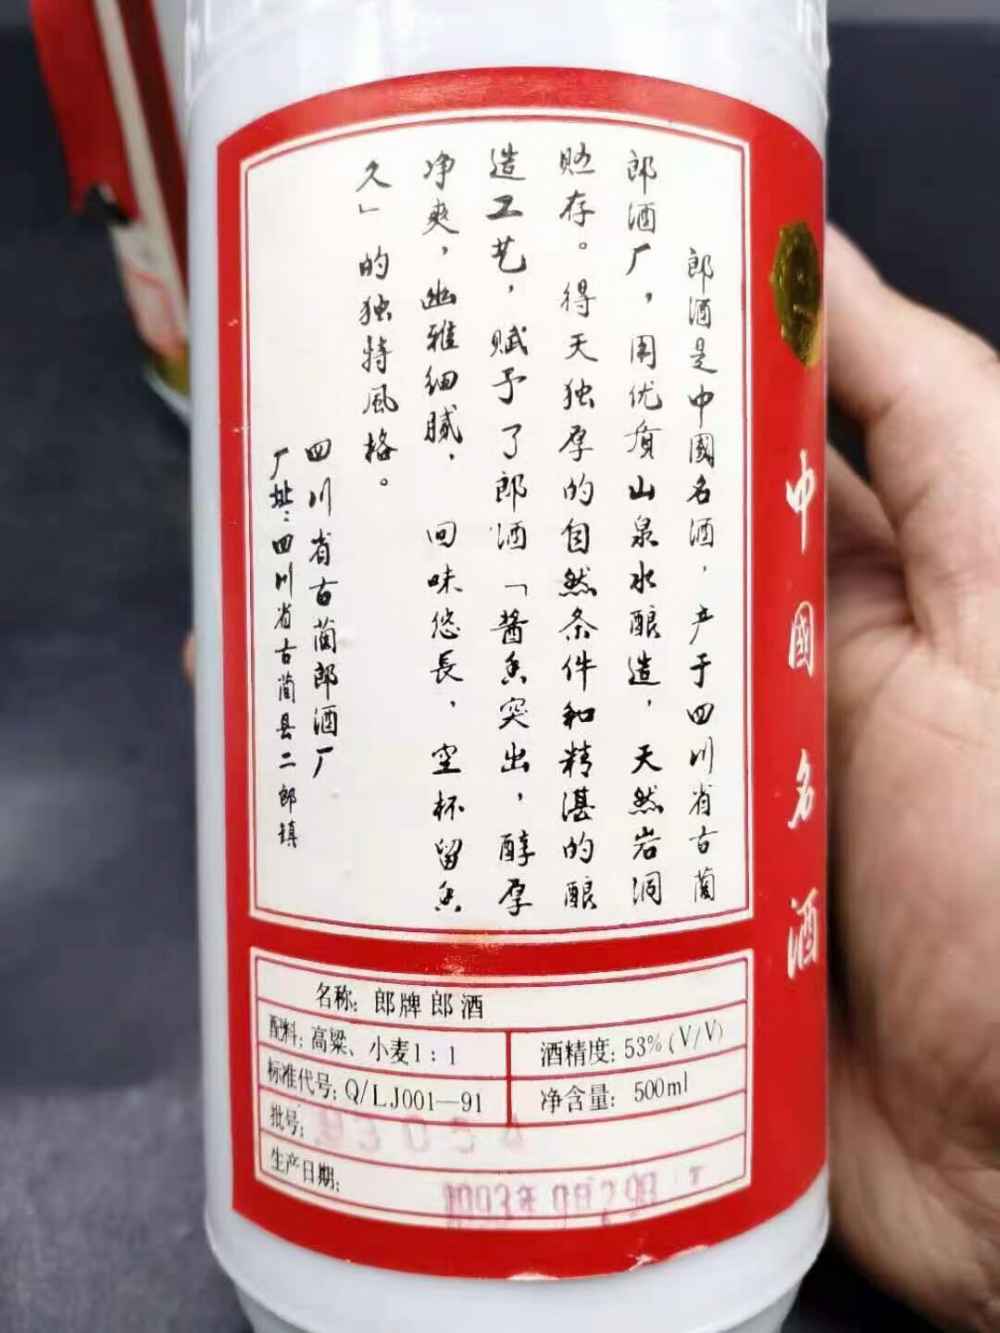 郎酒是中國名酒，产于四川省古蔺
郎酒厂，用优质山泉水酿造，天然岩洞
贮存。得天独厚的自然条件和精湛的酿
造工艺，赋予了郎酒「酱香突出，醇厚
净爽，幽雅细腻，回味悠長，空杯留香
久」的独特風格。
四川省古蔺郎酒厂
厂址：四川省古蔺县二郎镇
中國名酒
名称：郎牌郎酒
配料：高粱、小麦1：1
酒精度：53%(V/V)
标准代号：Q/LJ001—91
净含量：500ml
批号：
生产日期：